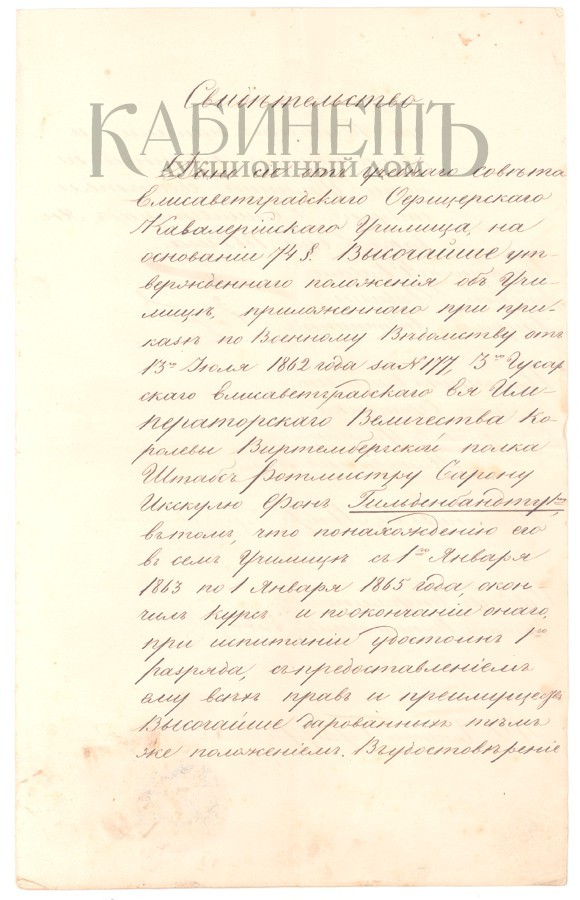 Свидѣтельство
КАБИНЕТЪ
АУКЦИОННЫЙ ДОМ
Дано сіе отъ учебнаго совѣта
Елисаветградскаго Офицерскаго
Кавалерійскаго Училища, на
основаніи 74 §. Высочайше ут-
вержденнаго положенія объ Учи-
лищѣ, приложеннаго при при-
казѣ по Военному Вѣдомству отъ
13го Іюля 1862 года за № 177, 3го Гусар
скаго Елисаветградскаго Ея Им-
ператорскаго Величества Ко-
ролевы Виртембергской полка
Штабсъ Ротмистру Барону
Икскулю фонъ Гильденбандту 1му
въ томъ, что по нахожденію его
въ семъ Училищѣ съ 1го Января
1863 по 1 Января 1865 года, окон-
чилъ курсъ и по окончаніи онаго,
при испытаніи удостоинъ 1го
разряда, съ предоставленіемъ
ему всѣхъ правъ и преимуществъ
Высочайше дарованныхъ тѣмъ
же положеніемъ. Въ удостовѣреніе